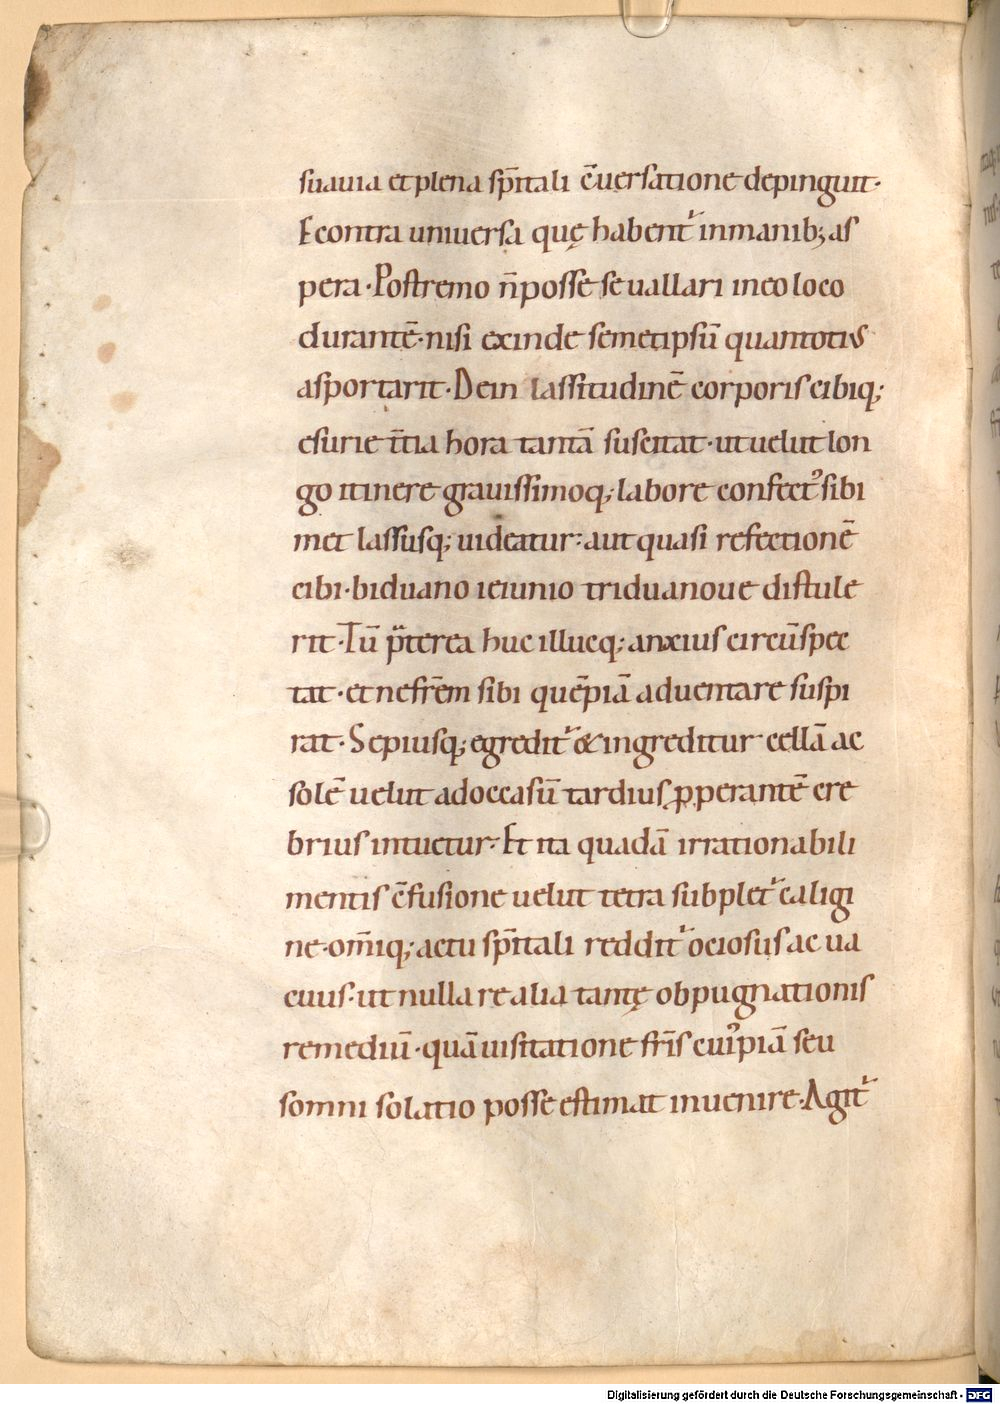 suauia et plena sp̄itali c̄uersatione depinguit·
Econtra uniuersa quę habent᷑ inmanib; as
pera· Postremo n̄ posse se uallari ineo loco
durantē· nisi exinde semetipsū quantotius
asportarit· Dein lassitudinē corporis cibiq;
esurie t̄tia hora tantā suscitat· ut uelut lon
go itinere grauissimoq; labore confect᾽ sibi
met lassusq; uideatur: aut quasi refectionē
cibi· biduano ieiunio triduanoue distule
rit· Tū p̄terea huc illucq; anxius circūspec
tat· et nefrēm sibi quēpiā aduentare suspi
rat· Sepiusq; egredit᷑ & ingreditur cellā ac
solē uelut adoccasū tardius ꝓperantē cre
brius intuetur· Et ita quadā irrationabili
mentis c̄fusione uelut tetra subplet᷑ caligi
ne· om̄iq; actu sp̄itali reddit᷑ ociosus ac ua
cuus· ut nulla re alia tantę obpugnationis
remediū· quā uisitatione fr̄is cui᾽piā seu
somni solatio posse estimat inuenire· Agit᷑
Digitalisierung gefördert durch die Deutsche Forschungsgemeinschaft - DFG